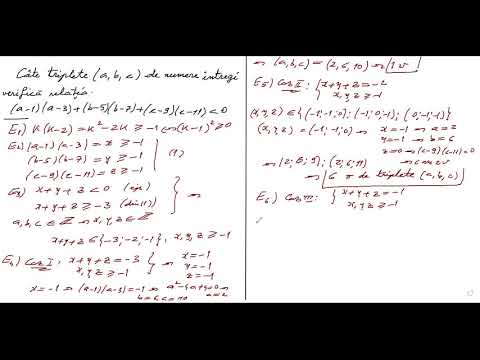 Câte triplete (a, b, c) de numere întregi
verifică relația.
(a-1)(a-3)+(b-5)(b-7)+(c-9)(c-11)<0
E1) K(K-2) = K²-2K ≥ -1 ⇔ (K-1)² ≥ 0
E2) (a-1)(a-3) = x ≥ -1
(b-5)(b-7) = y ≥ -1
(c-9)(c-11) = z ≥ -1
} (1)
E3) x+y+z < 0 (ip)
x+y+z ≥ -3 (din 1)
a, b, c ∈ Z ⇒ x, y, z ∈ Z
} ⇒
x+y+z ∈ {-3; -2; -1}, x, y, z ≥ -1
E4) Caz I: { x+y+z = -3
x, y, z ≥ -1
} ⇒ x = -1
y = -1
z = -1
x = -1 ⇒ (a-1)(a-3) = -1 ⇒ a²-4a+4=0 ⇒
a=2
b=6, c=10
⇒ (a, b, c) = (2, 6, 10) ⇒ 1
E5) Caz II: { x+y+z = -2
x, y, z ≥ -1
(x, y, z) ∈ {(-1; -1; 0); (-1; 0; -1); (0; -1; -1)}
(x, y, z) = (-1; -1; 0) ⇒ x = -1 ⇒ a = 2
y = -1 ⇒ b = 6
z = 0 ⇒ (c-9)(c-11) = 0
⇒ (2; 6; 9); (2; 6; 11)
⇒ 6 de triplete (a, b, c)
E6) Caz III: { x+y+z = -1
x, y, z ≥ -1